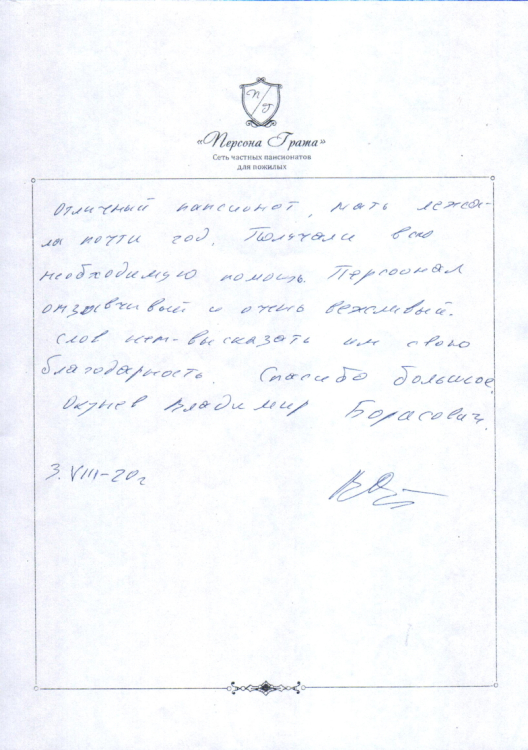 П
Г
«Персона Грата»
Сеть частных пансионатов
для пожилых
Отличный пансионот, мать лежа-
ла почти год. Получали всю
необходимую помощь. Персонал
отзывчивый и очень вежливый.
Слов нет-высказать им свою
благодарность. Спасибо большое.
Владимир Борисович.
3.VIII-20г